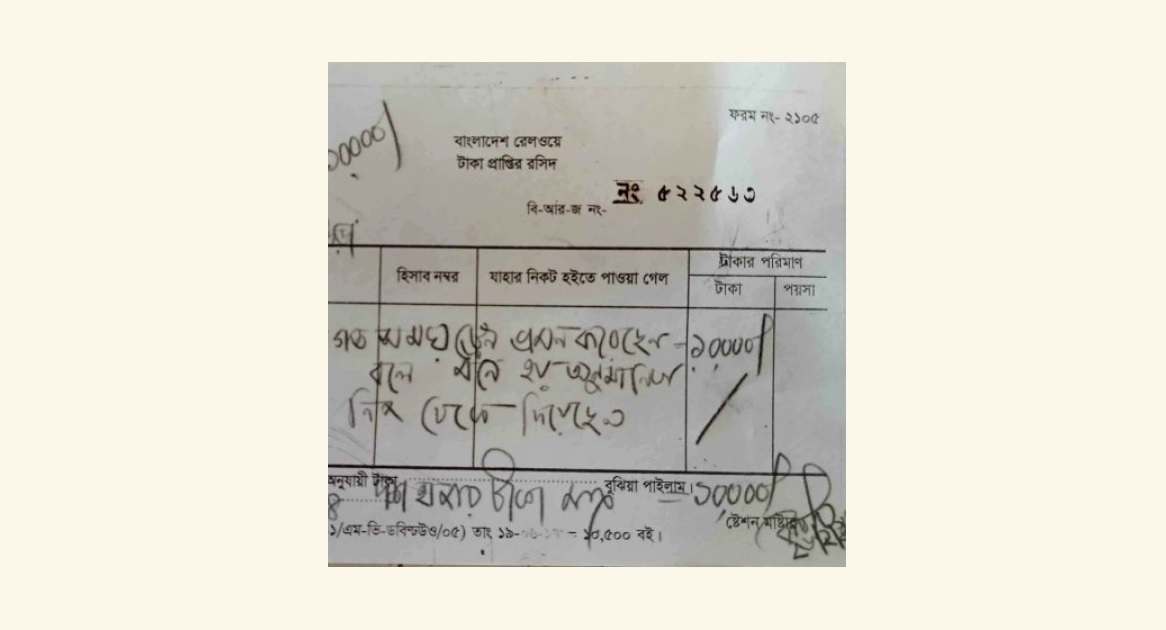 ফরম নং- ২১০৫
১০০০০/
বাংলাদেশ রেলওয়ে
টাকা প্রাপ্তির রসিদ
বি-আর-জ নং- নং ৫২২৫৬৩
হিসাব নম্বর যাহার নিকট হইতে পাওয়া গেল টাকার পরিমাণ
টাকা পয়সা
গত সময় ট্রেন ভ্রমন করেছেন - ১০০০০/
বলে মনে হয়
নিজ থেকে দিয়েছেন
অনুযায়ী টাকা হাজার টাকা মাত্র বুঝিয়া পাইলাম। ১০০০০/
ষ্টেশন মাষ্টার
১/এম-ভি-ডব্লিউ/০৫) তাং ১৯- - ১০,৫০০ বই।